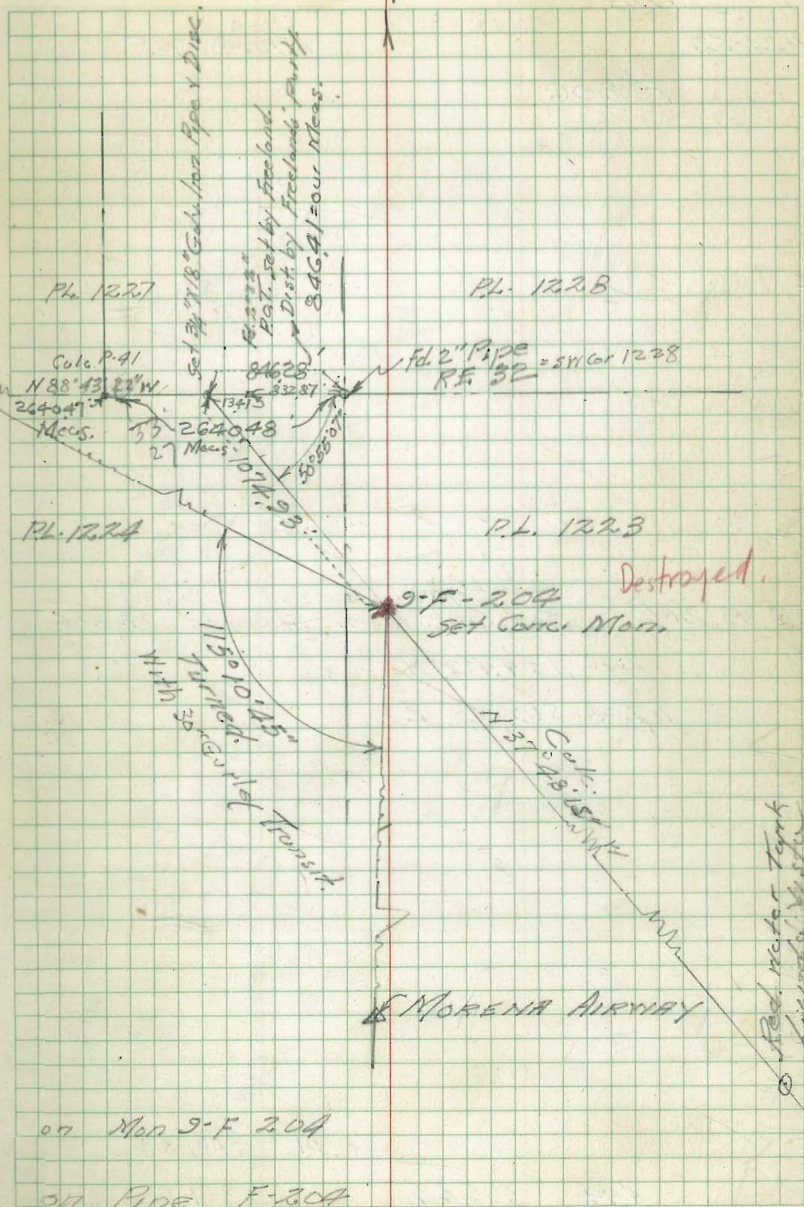 Set 3/4" X 18" Galv. Iron Pipe & Disc.
Fd. 2" x 2"
P.O.T. set by Freeland
Dist. by Freeland's party
846.41 = our Meas.
P.L. 1227
P.L. 1228
Calc. P-41
N 88° 43' 22" W
2640.47
Meas.
846.28
832.87
13.415
Fd. 2" Pipe
R.E. 32 = SW cor 1228
53
27
2640.48
Meas.
50° 55' 07"
1074.93
P.L. 1224
P.L. 1223
Destroyed.
9-F-204
Set Conc. Mon.
115° 10' 45"
Turned
with
Transit
Calc.
N 37° 48' 18" W
MORENA AIRWAY
Red. Water Tank
on Mon 9-F 204
on Pipe F-204